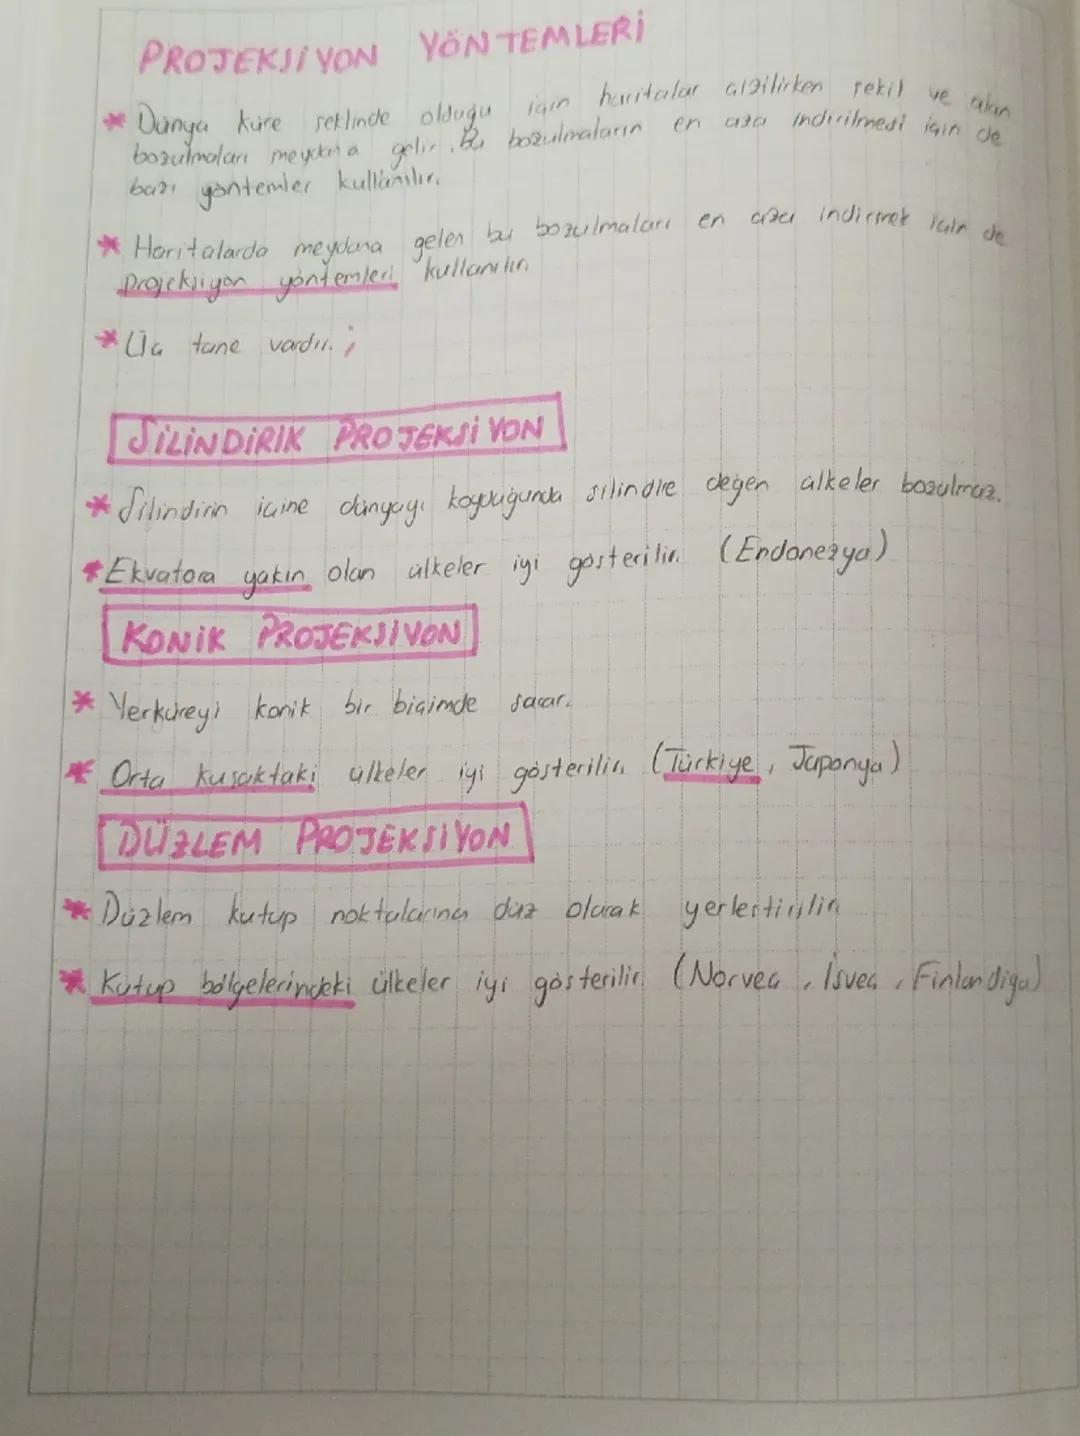 PROJEKSİYON YÖNTEMLERİ
* Dünya küre şeklinde olduğu için haritalar çizilirken şekil ve alan
bozulmaları meydana gelir. Bu bozulmaların en aza indirilmesi için de
bazı yöntemler kullanılır.
* Haritalarda meydana gelen bu bozulmaları en aza indirmek için de
projeksiyon yöntemleri kullanılır.
* Üç tane vardır. ;
SİLİNDİRİK PROJEKSİYON
* Silindirin içine dünyayı koyduğunda silindire değen ülkeler bozulmaz.
* Ekvatora yakın olan ülkeler iyi gösterilir. (Endonezya)
KONİK PROJEKSİYON
* Yerküreyi konik bir biçimde sarar.
* Orta kuşaktaki ülkeler iyi gösterilir. (Türkiye, Japonya)
DÜZLEM PROJEKSİYON
* Düzlem kutup noktalarına düz olarak yerleştirilir.
* Kutup bölgelerindeki ülkeler iyi gösterilir. (Norveç, İsveç, Finlandiya)